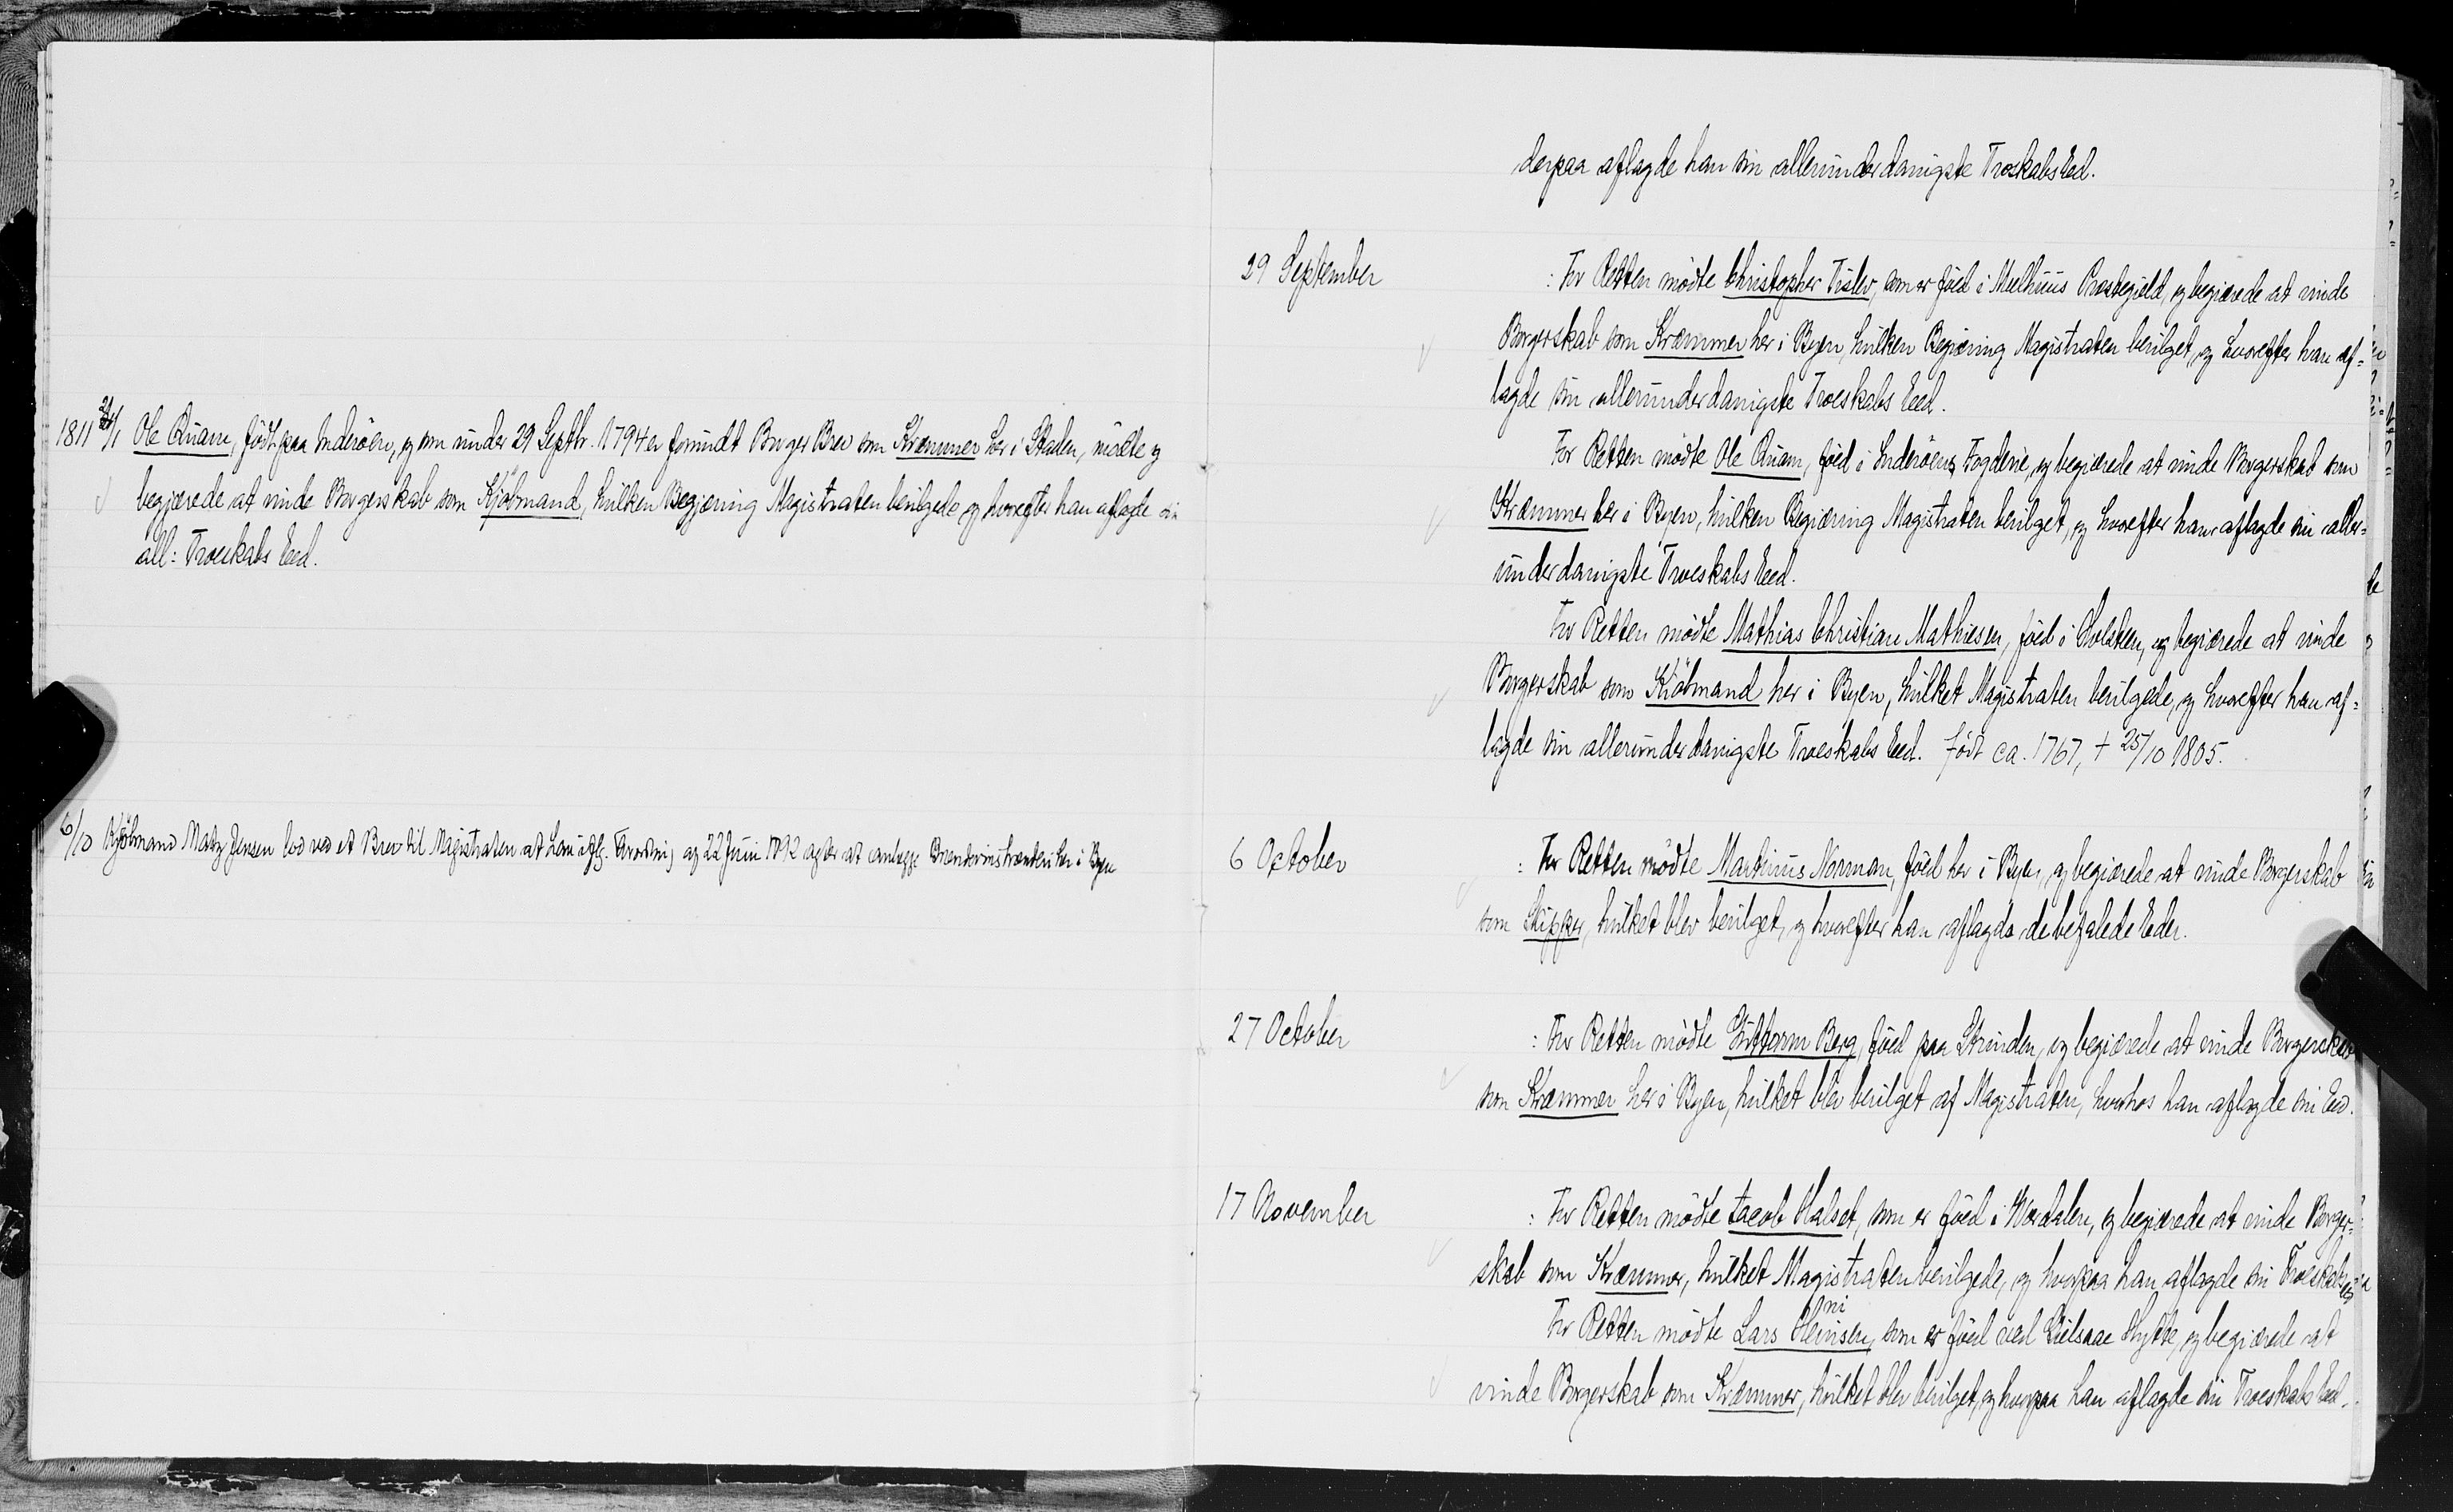 1811 24/1 Ole Quam, født paa Inderöen, og som under 29 Septbr. 1794 er forundt Borger Brev som Kræmmer her i Staden, mödte og
begjærede at vinde Borgerskab som Kjöbmand, hvilken Begjæring Magistraten bevilgede og hvorefter han aflagde sin
all: Troeskabs Eed.
6/10 Kjöbmand Matz Jensen lod ved et Brev til Magistraten at han iflg. Forordning af 22 Juni 1792 agter at anlægge her i Byen
derpaa aflagde han sin allerunderdanigste TroskabsEed.
29 September : For Retten mödte Christopher Tisler, som er föed i Meelhuus Præstegield, og begiærede at vinde
Borgerskab som Kræmmer her i Byen, hvilken Begiæring Magistraten bevilget, og hvorefter han af=
lagde sin allerunderdanigste Troeskabs Eed.
For Retten mödte Ole Quam, föed i Inderöens Fogderie, og begiærede at vinde Borgerskab som
Kræmmer her i Byen, hvilken Begiæring Magistraten bevilget, og hvorefter han aflagde sin aller=
underdanigste Troeskabs Eed.
For Retten mödte Mathias Christian Mathiesen, föed i Holsten, og begiærede at vinde
Borgerskab som Kiöbmand her i Byen, hvilket Magistraten bevilgede, og hvorefter han af=
lagde sin allerunderdanigste Troeskabs Eed. Født ca. 1767, † 25/10 1805.
6 October : For Retten mödte Martinus Norman, föed her i Byen, og begiærede at vinde Borgerskab
som Skipper, hvilket blev bevilget, og hvorefter han aflagde de befalede Eder.
27 October : For Retten mödte Guttorm Berg, föed paa Strinden, og begiærede at vinde Borgerskab
som Kræmmer her i Byen, hvilket blev bevilget af Magistraten, hvorhos han aflagde sin Eed.
17 November : For Retten mödte Jacob Halset, som er föed i Værdalen, og begiærede at vinde Borger=
skab som Kræmmer, hvilket Magistraten bevilgede, og hvorpaa han aflagde sin Troeskabs Eed
For Retten mödte Lars Hevinsen, som er föed ved Guulsaae Hytte, og begiærede at
vinde Borgerskab som Kræmmer, hvilket blev bevilget, og hvorpaa han aflagde sin Troeskabs Eed.